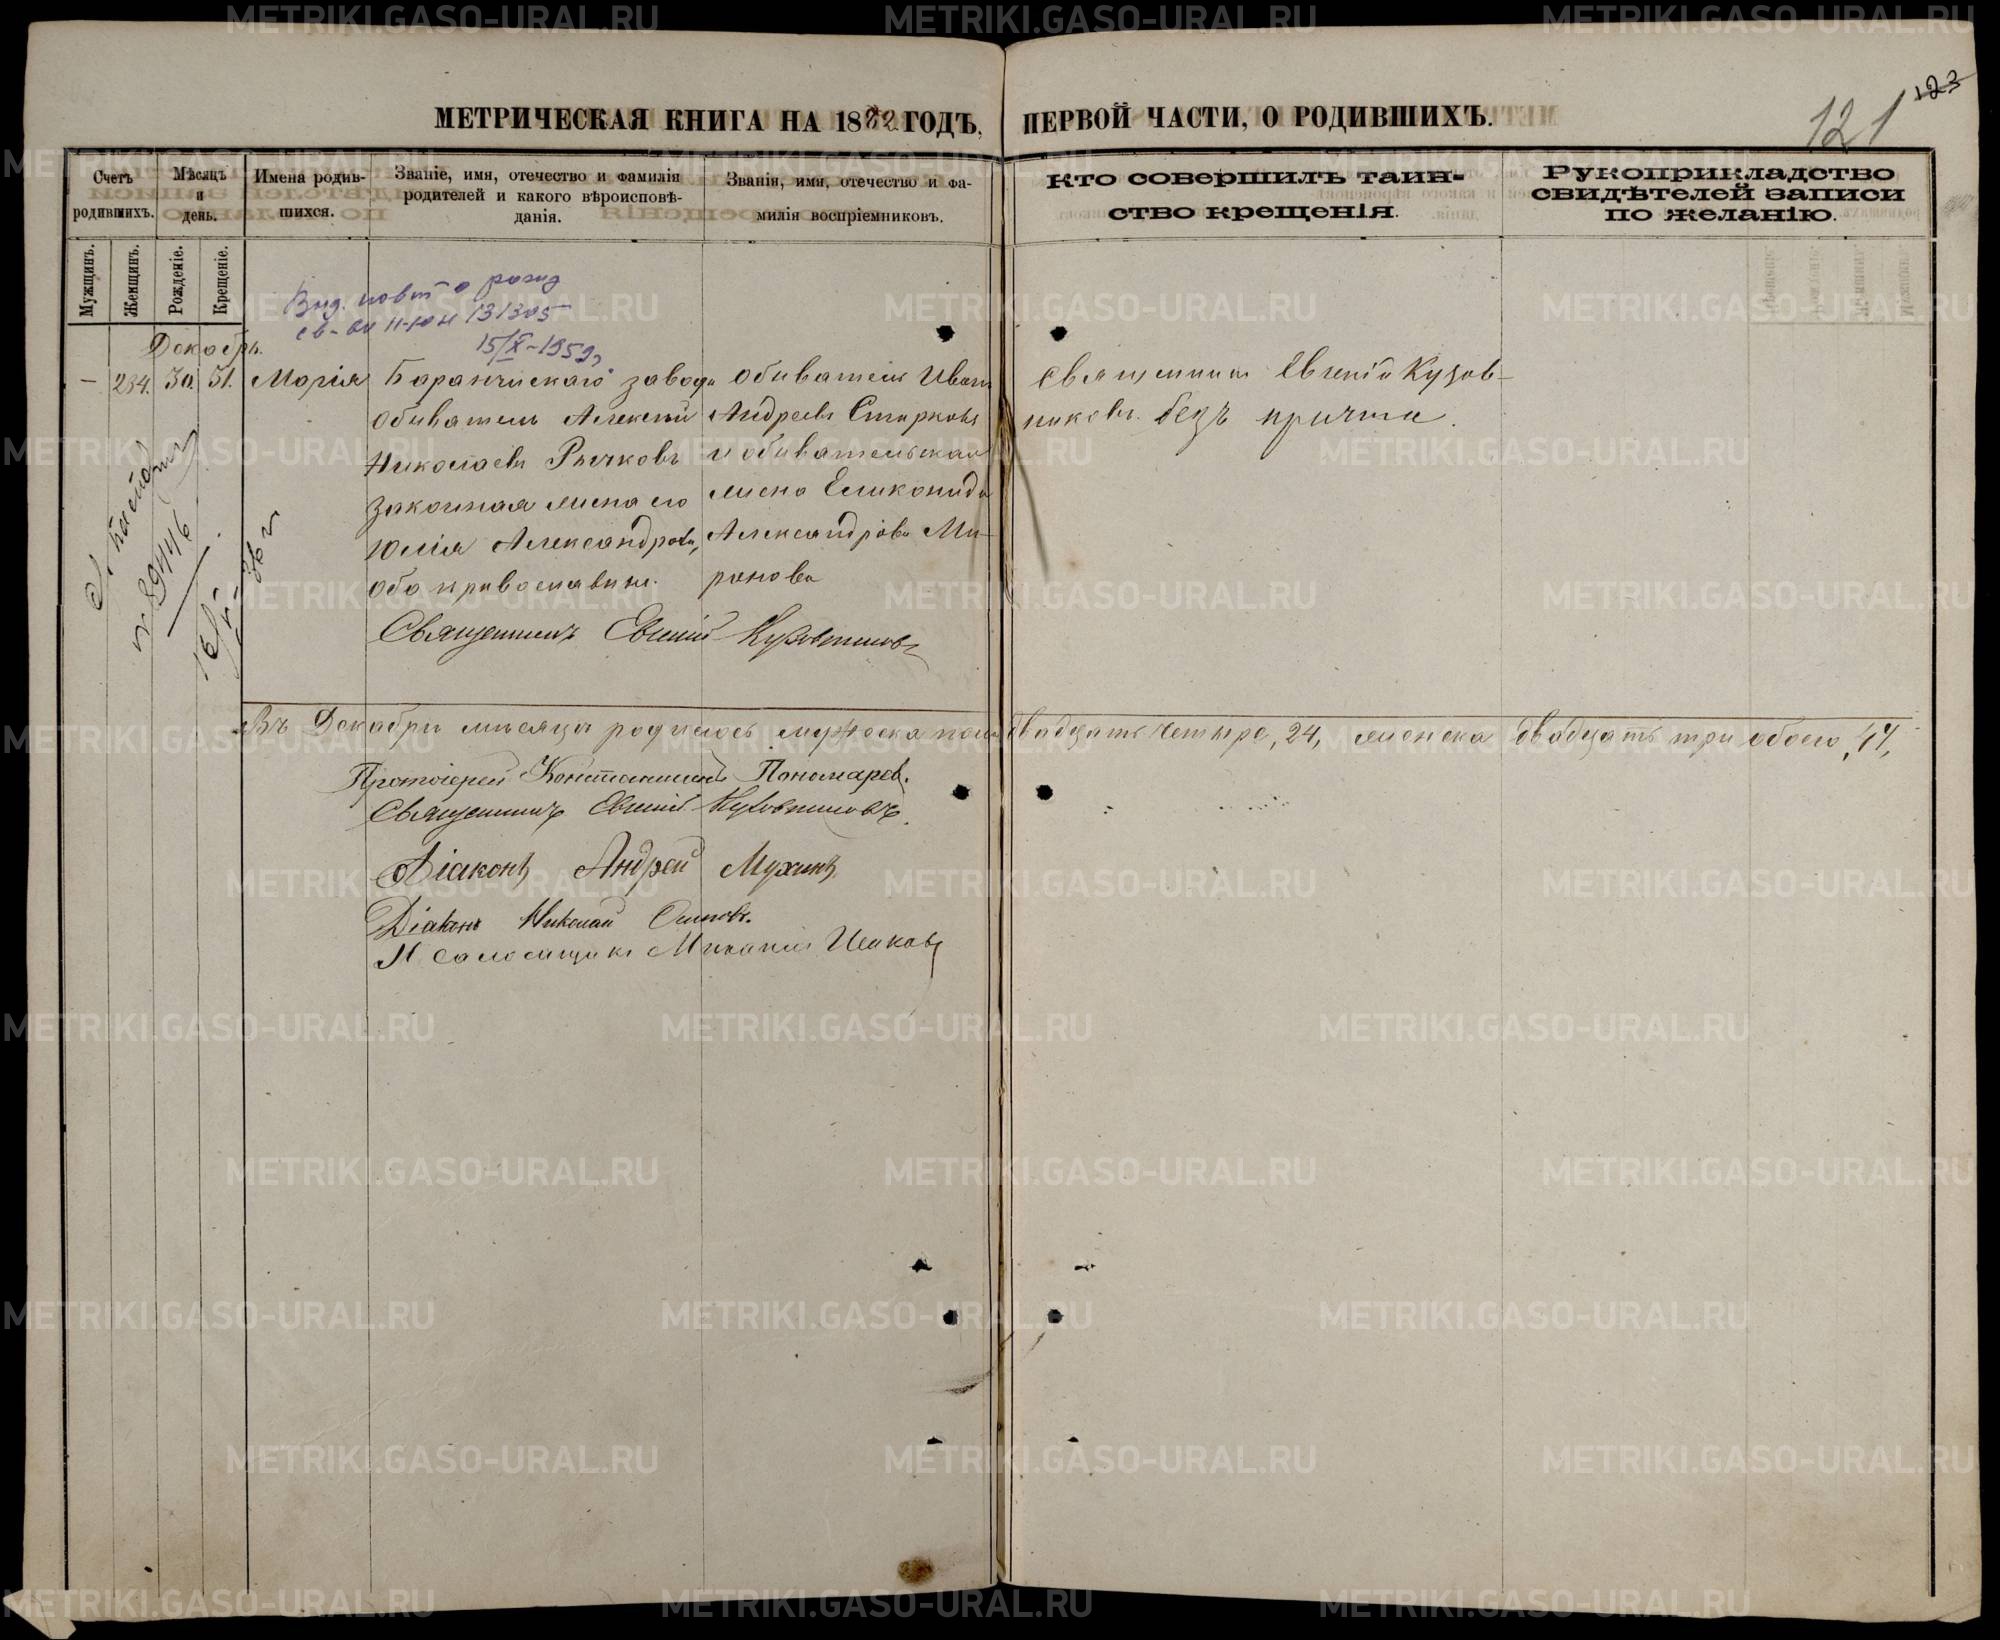 МЕТРИЧЕСКАЯ КНИГА НА 18 ГОДЪ, ПЕРВОЙ ЧАСТИ, О РОДИВШИХЪ.
121 123
Счетъ родившихъ.
Мѣсяцъ и день.
Имена родившихся.
Званіе, имя, отечество и фамилія родителей и какого вѣроисповѣданія.
Званія, имя, отечество и фамилія воспріемниковъ.
Кто совершилъ таинство крещенія.
Рукоприкладство свидѣтелей записи по желанію.
Мужщинъ.
Женщинъ.
Рожденіе.
Крещеніе.
Выд. повт о рожд
св-во II-ЮН 131305
15/X-1959г
Декабрь.
— 234. 30. 31. Марія
Баранчискаго завода
обыватель Алексѣй
Николаевъ Рычковъ
законная жена его
Юлія Александрова,
оба православные.
обыватель Иванъ
Андреевъ Стярковъ
и обывательская
жена Еликонида
Александрова Ми-
ронова
Священникъ Евгеній Кузов-
никовъ. безъ причта.
Священникъ Евгеній Кузовниковъ
Въ Декабрѣ мѣсяцѣ родилось мужеска пола двадцать четыре, 24, женска двадцать три обоего, 47,
Протоіерей Константинъ Пономаревъ.
Священникъ Евгеній Кузовниковъ.
Діаконъ Андрей Мухинъ
Діаконъ Николай
Псаломщикъ
METRIKI.GASO-URAL.RU